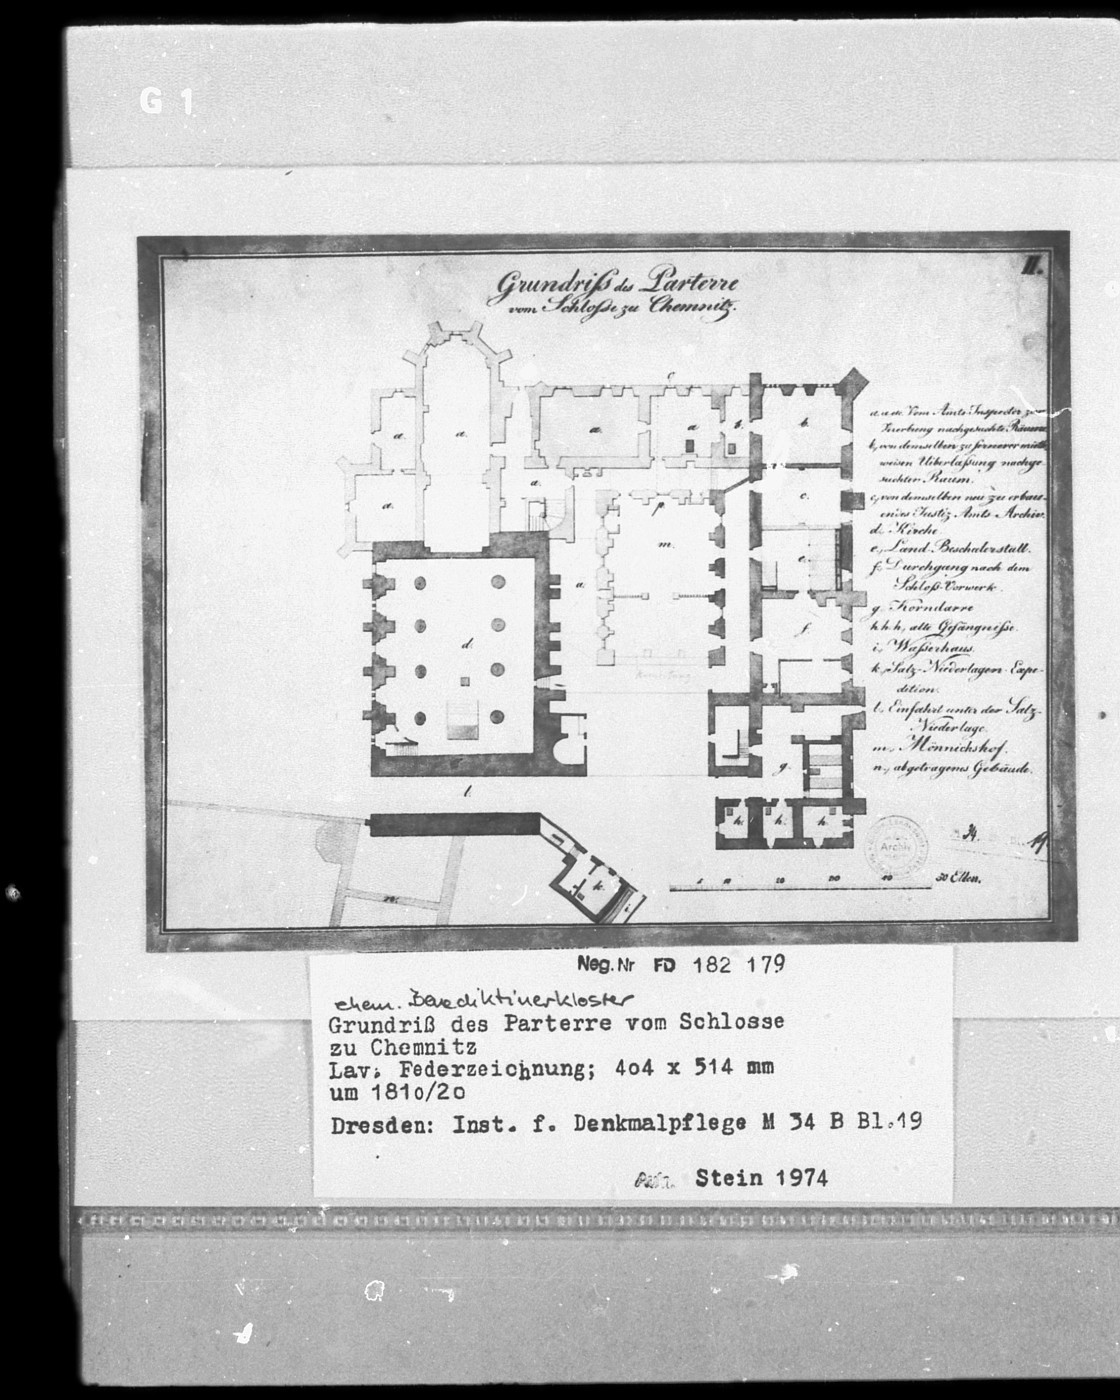 G 1
II.
Grundriß des Parterre
vom Schloße zu Chemnitz.
a. a. etc. Vom Amts Inspector zur
nachgesuchte Räume
b, von demselben zu fernerer
weisen Ueberlaßung nachge
suchter Raum.
c, von demselben neu zu erbau-
endes Justiz Amts Archiv.
d, Kirche
e, Land-Beschalerstall.
f, Durchgang nach dem
Schloß-Vorwerk.
g, Korndarre
h.h.h, alte Gefängniße.
i, Waßerhaus.
k, Salz-Niederlagen-Expe-
dition.
l, Einfahrt unter der Salz-
Niederlage.
m, Mönnichshof.
n, abgetragenes Gebäude.
a.
a.
a.
a
b.
b.
a.
a.
c.
p.
m.
e.
a.
f.
d.
g.
l.
h.
h.
h
k.
i.
n.
Archiv
34.
19
5 10 20 30 40 50 Ellen.
Neg.Nr FD 182 179
ehem. Benediktinerkloster
Grundriß des Parterre vom Schlosse
zu Chemnitz
Lav. Federzeichnung; 404 x 514 mm
um 1810/20
Dresden: Inst. f. Denkmalpflege M 34 B Bl.19
Stein 1974